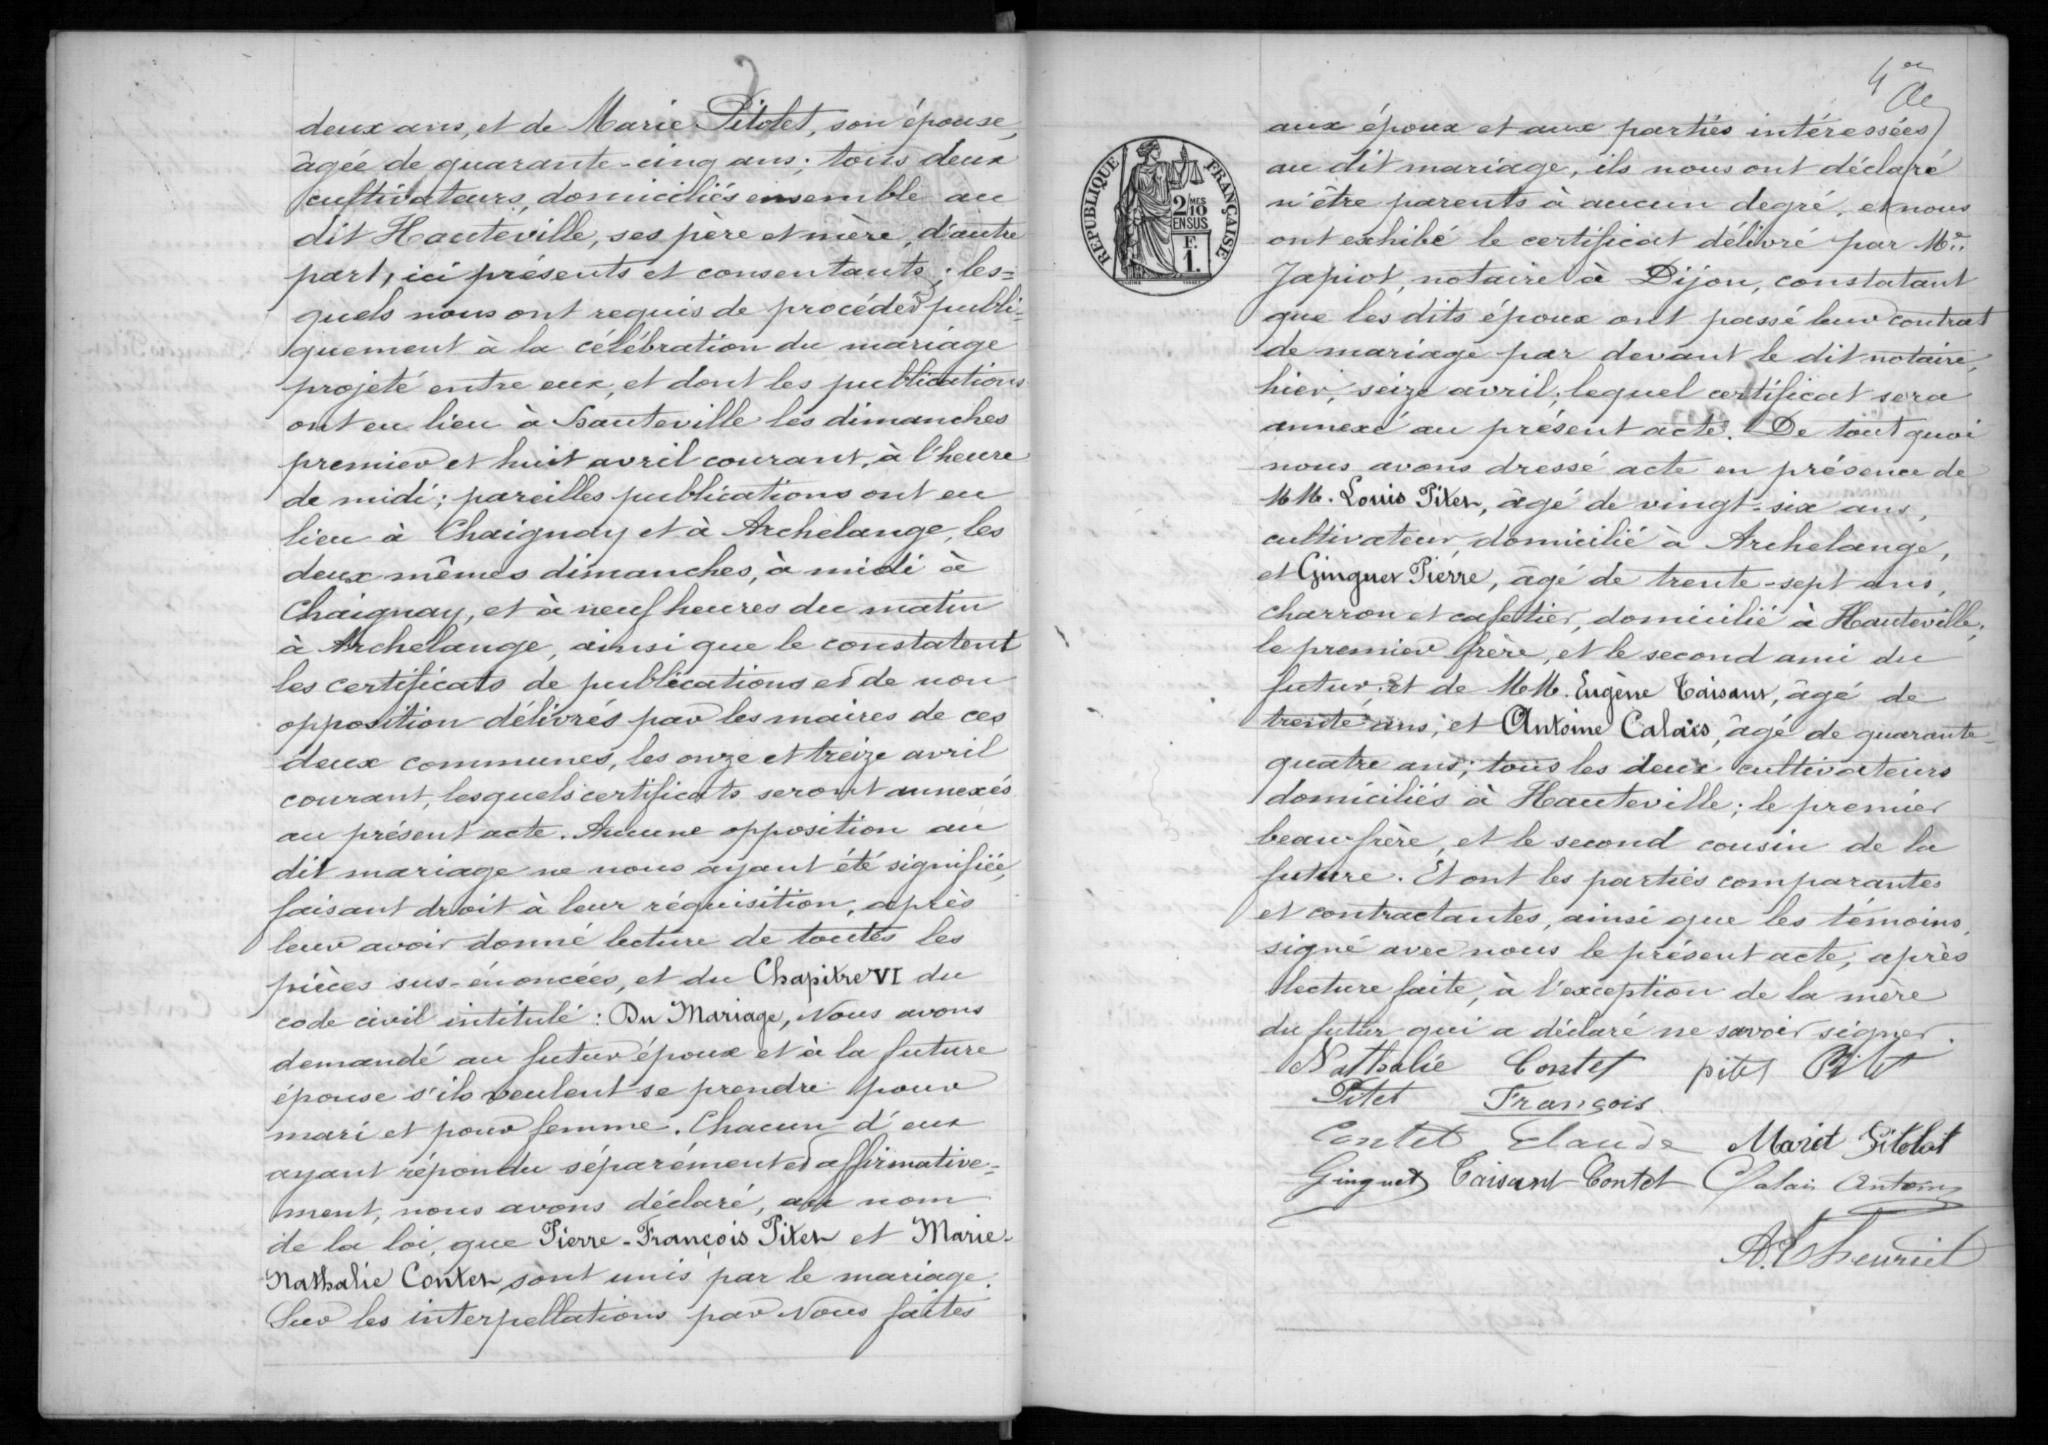 deux ans, et de Marie Pitolet, son épouse,
âgée de quarante-cinq ans; tous deux
cultivateurs, domiciliés ensemble au
dit Hauteville, ses père et mère, d'autre
part, ici présents et consentants; les=
quels nous ont requis de procéder publi-
quement à la célébration du mariage
projeté entre eux, et dont les publications
ont eu lieu à Hauteville les dimanches
premier et huit avril courant, à l'heure
de midi; pareilles publications ont eu
lieu à Chaignay et à Archelange, les
deux mêmes dimanches, à midi à
Chaignay, et à neuf heures du matin
à Archelange, ainsi que le constatent
les certificats de publications et de non
opposition délivrés par les maires de ces
deux communes, les onze et treize avril
courant, lesquels certificats seront annexés
au présent acte. Aucune opposition au
dit mariage ne nous ayant été signifiée,
faisant droit à leur réquisition, après
leur avoir donné lecture de toutes les
pièces sus-énoncées, et du Chapitre VI du
code civil intitulé: Du Mariage, Nous avons
demandé au futur époux et à la future
épouse s'ils veulent se prendre pour
mari et pour femme. Chacun d'eux
ayant répondu séparément et affirmative=
ment, nous avons déclaré, au nom
de la loi, que Pierre-François Pitet et Marie-
Nathalie Contet, sont unis par le mariage.
Sur les interpellations par Nous faites
4
REPUBLIQUE FRANÇAISE
2/10 MES
EN SUS
F.
1.
aux époux et aux parties intéressées
au dit mariage, ils nous ont déclaré
n'être parents à aucun degré, et nous
ont exhibé le certificat délivré par Me
Japiot, notaire à Dijon, constatant
que les dits époux ont passé leur contrat
de mariage par devant le dit notaire,
hier, seize avril; lequel certificat sera
annexé au présent acte. De tout quoi
nous avons dressé acte en présence de
MM. Louis Pitet, âgé de vingt-six ans,
cultivateur, domicilié à Archelange,
et Ginguet Pierre, âgé de trente-sept ans,
charron et cafetier, domicilié à Hauteville;
le premier frère, et le second ami du
futur: et de MM. Eugène Taisant, âgé de
trente ans, et Antoine Calais, âgé de quarante-
quatre ans; tous les deux cultivateurs
domiciliés à Hauteville; le premier
beau-frère, et le second cousin de la
future. Et ont les parties comparantes
et contractantes, ainsi que les témoins,
signé avec nous le présent acte, après
lecture faite, à l'exception de la mère
du futur qui a déclaré ne savoir signer.
Nathalie Contet pitet Pitet
Pitet François
Contet Claude Mariet Pitolet
Ginguet Taisant-Contet Calais Antoine
A. Theuriet